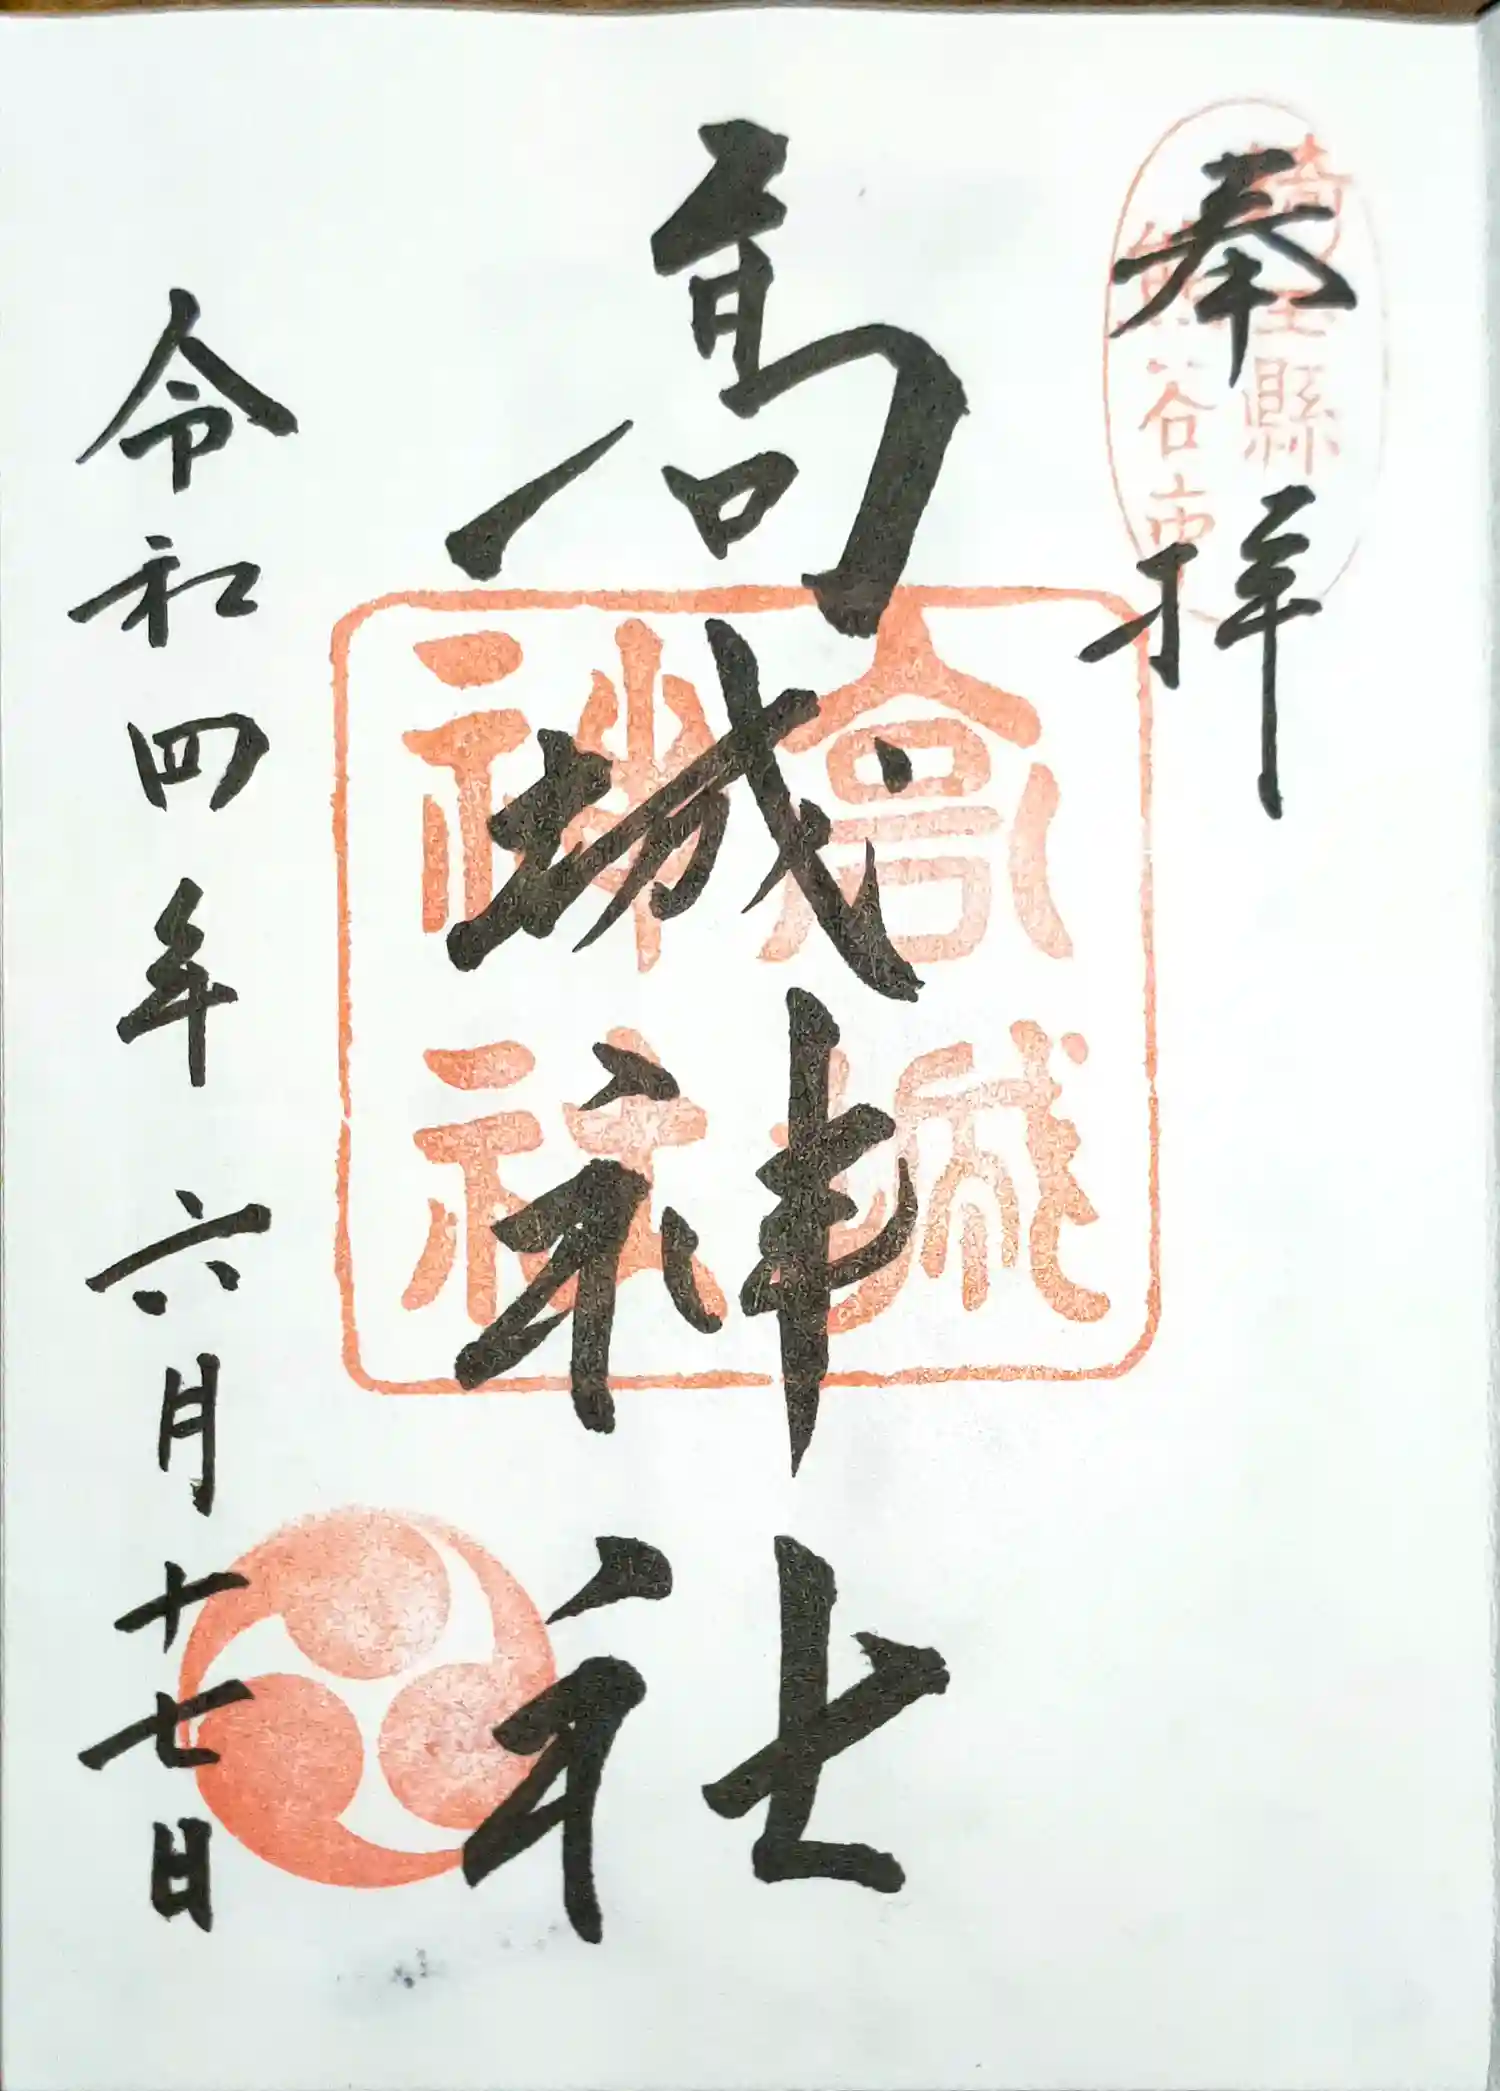 奉拝
埼玉縣
熊谷市
髙城神社
高城
神社
令和四年六月十七日